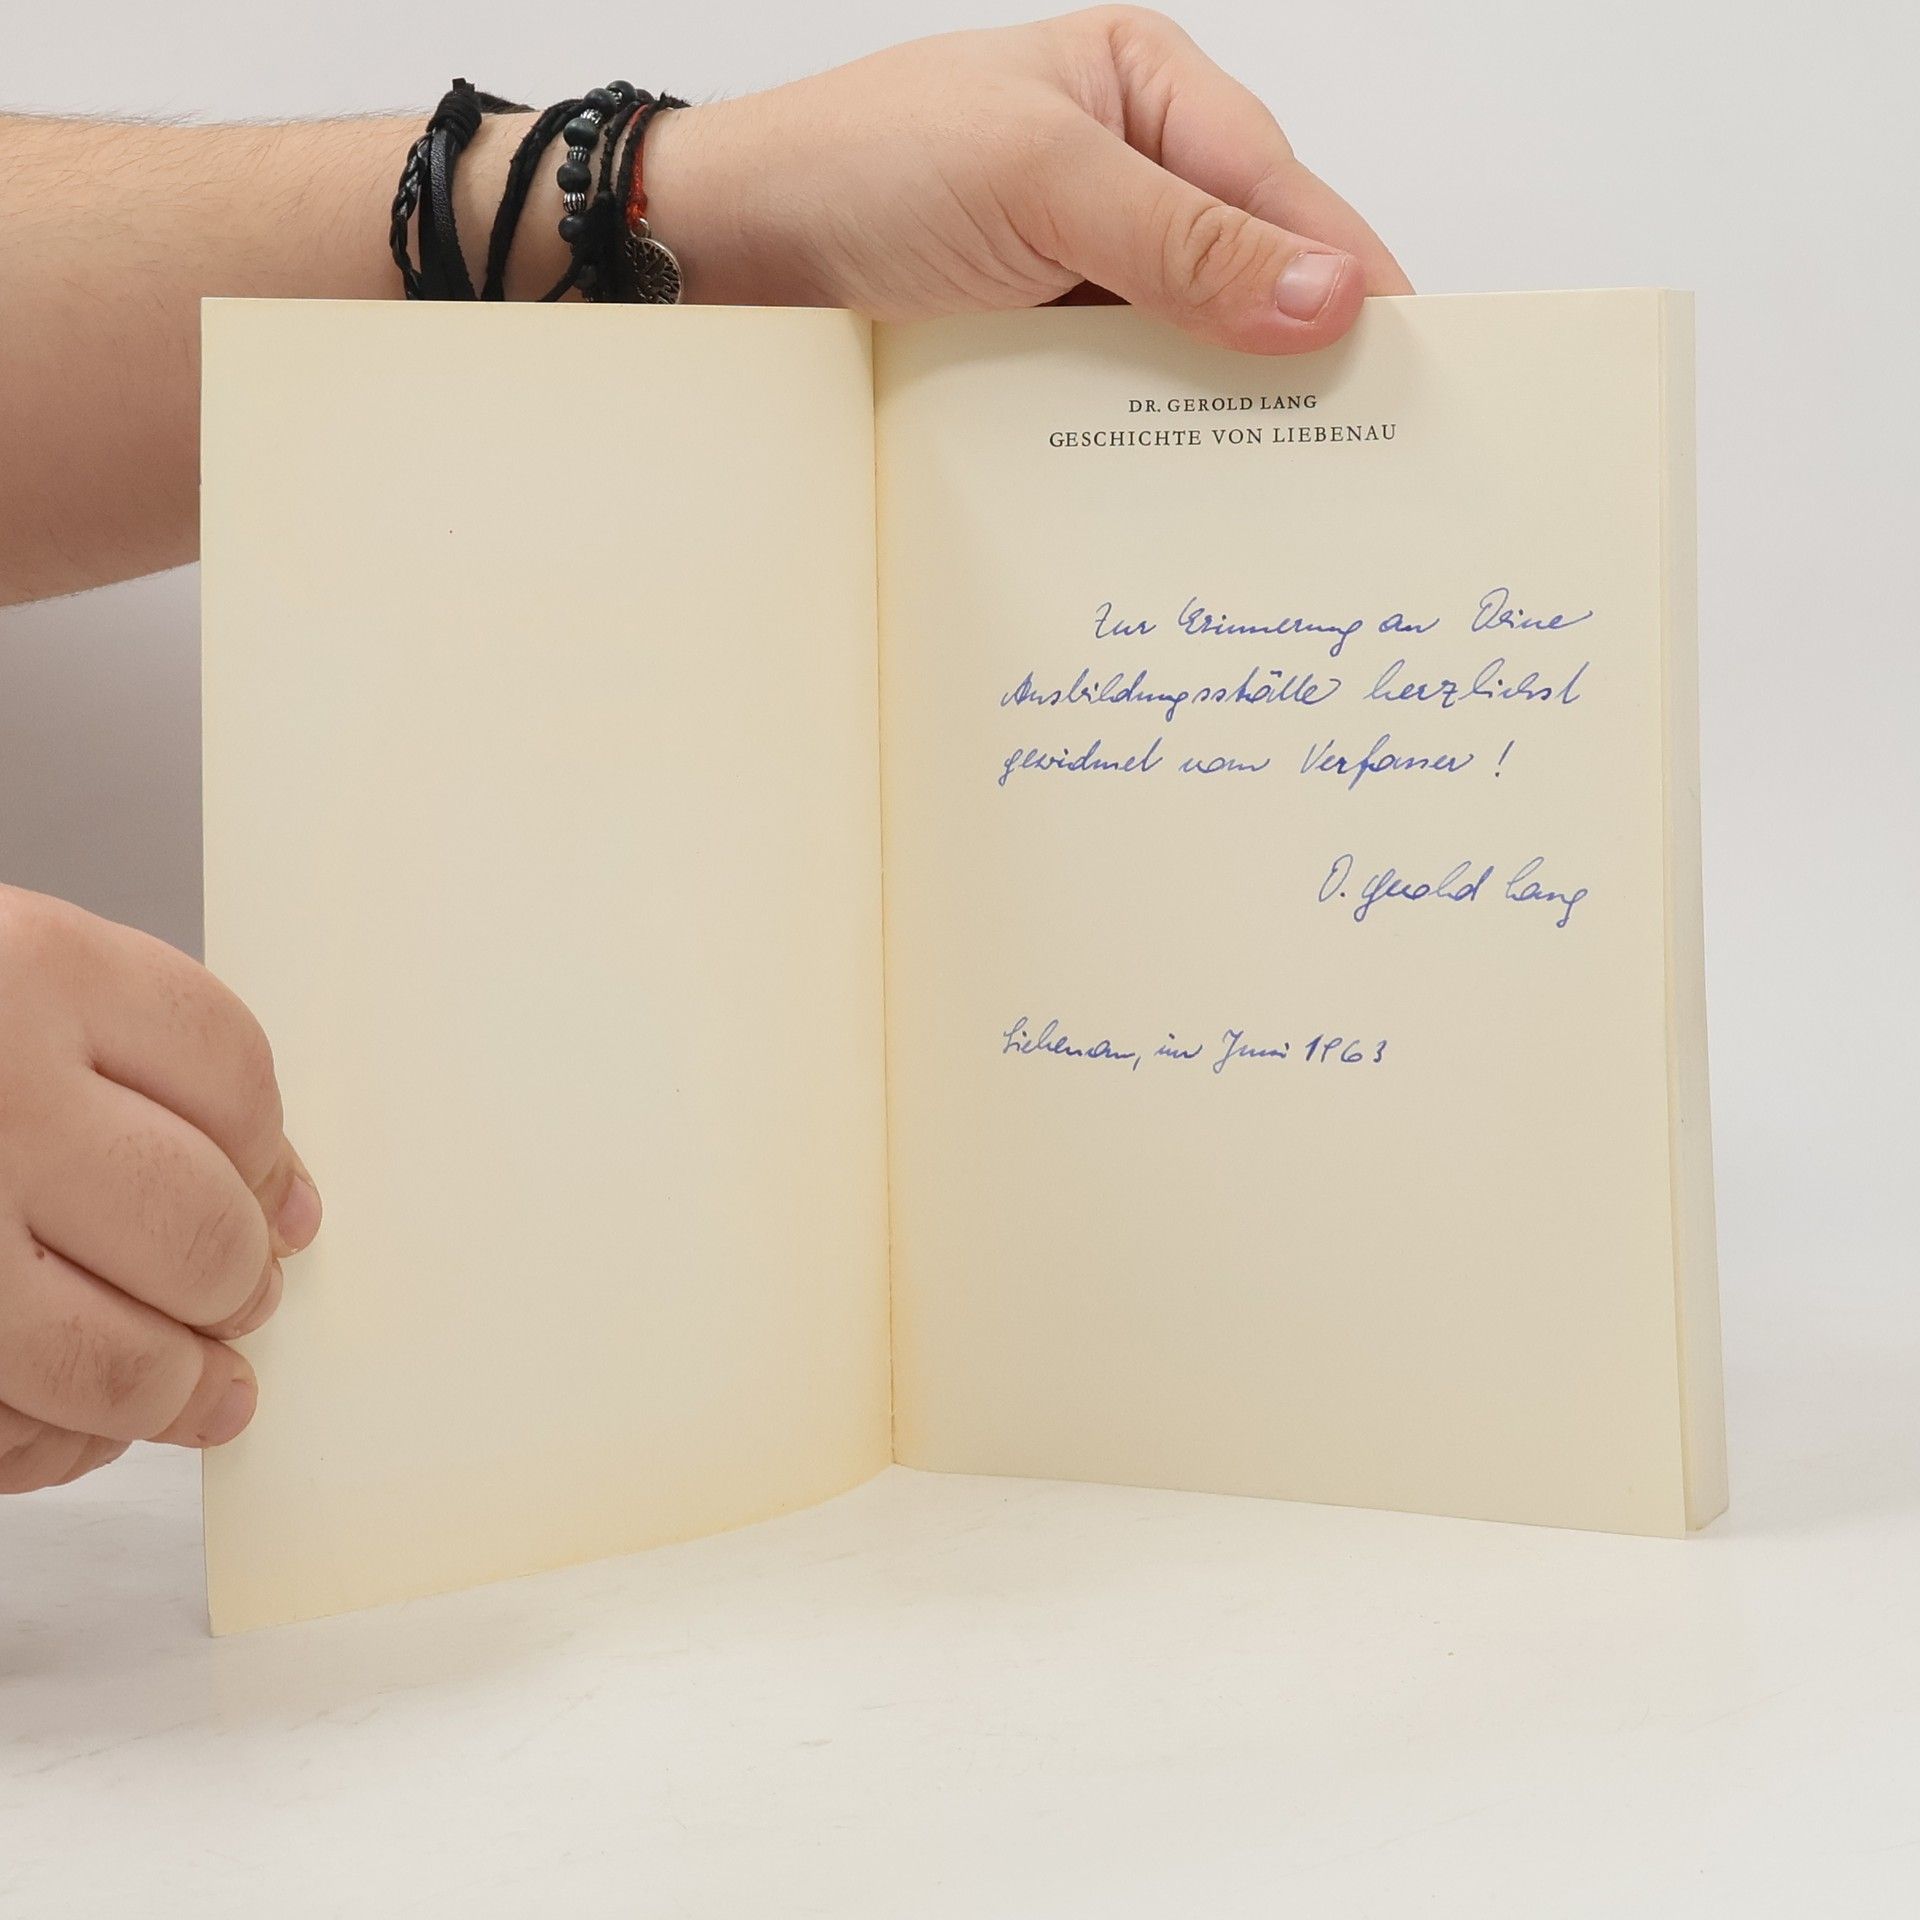 DR. GEROLD LANG
GESCHICHTE VON LIEBENAU
Zur Erinnerung an Deine
Ausbildungsstätte herzlichst
gewidmet vom Verfasser !
D. Gerold Lang
Liebenau, im Juni 1963